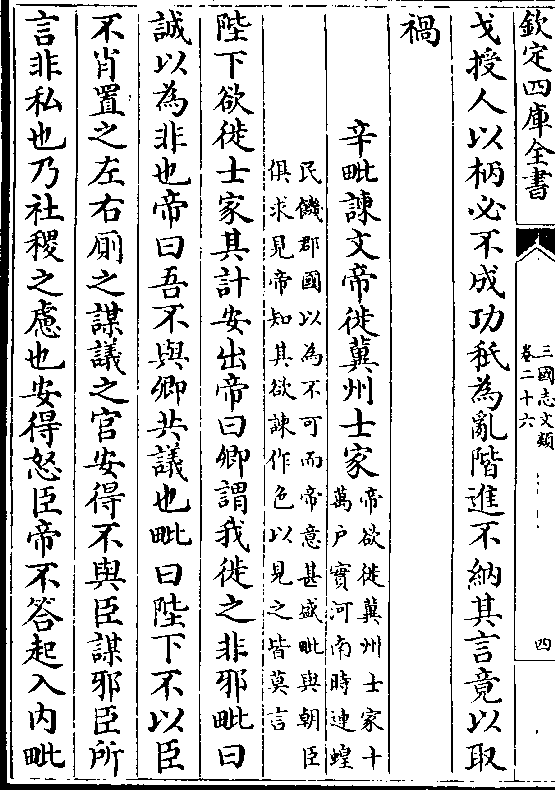 欽定四庫全書
三國志文類
卷二十六
四
戈授人以柄必不成功秖為亂階進不納其言竟以取
禍
辛毗諫文帝徙冀州士家
帝欲徙冀州士家十
萬户實河南時連蝗
民饑郡國以為不可而帝意甚盛毗與朝臣
俱求見帝知其欲諫作色以見之皆莫言
陛下欲徙士家其計安出帝曰卿謂我徙之非邪毗曰
誠以為非也帝曰吾不與卿共議也毗曰陛下不以臣
不肖置之左右厠之謀議之官安得不與臣謀邪臣所
言非私也乃社稷之慮也安得怒臣帝不答起入内毗